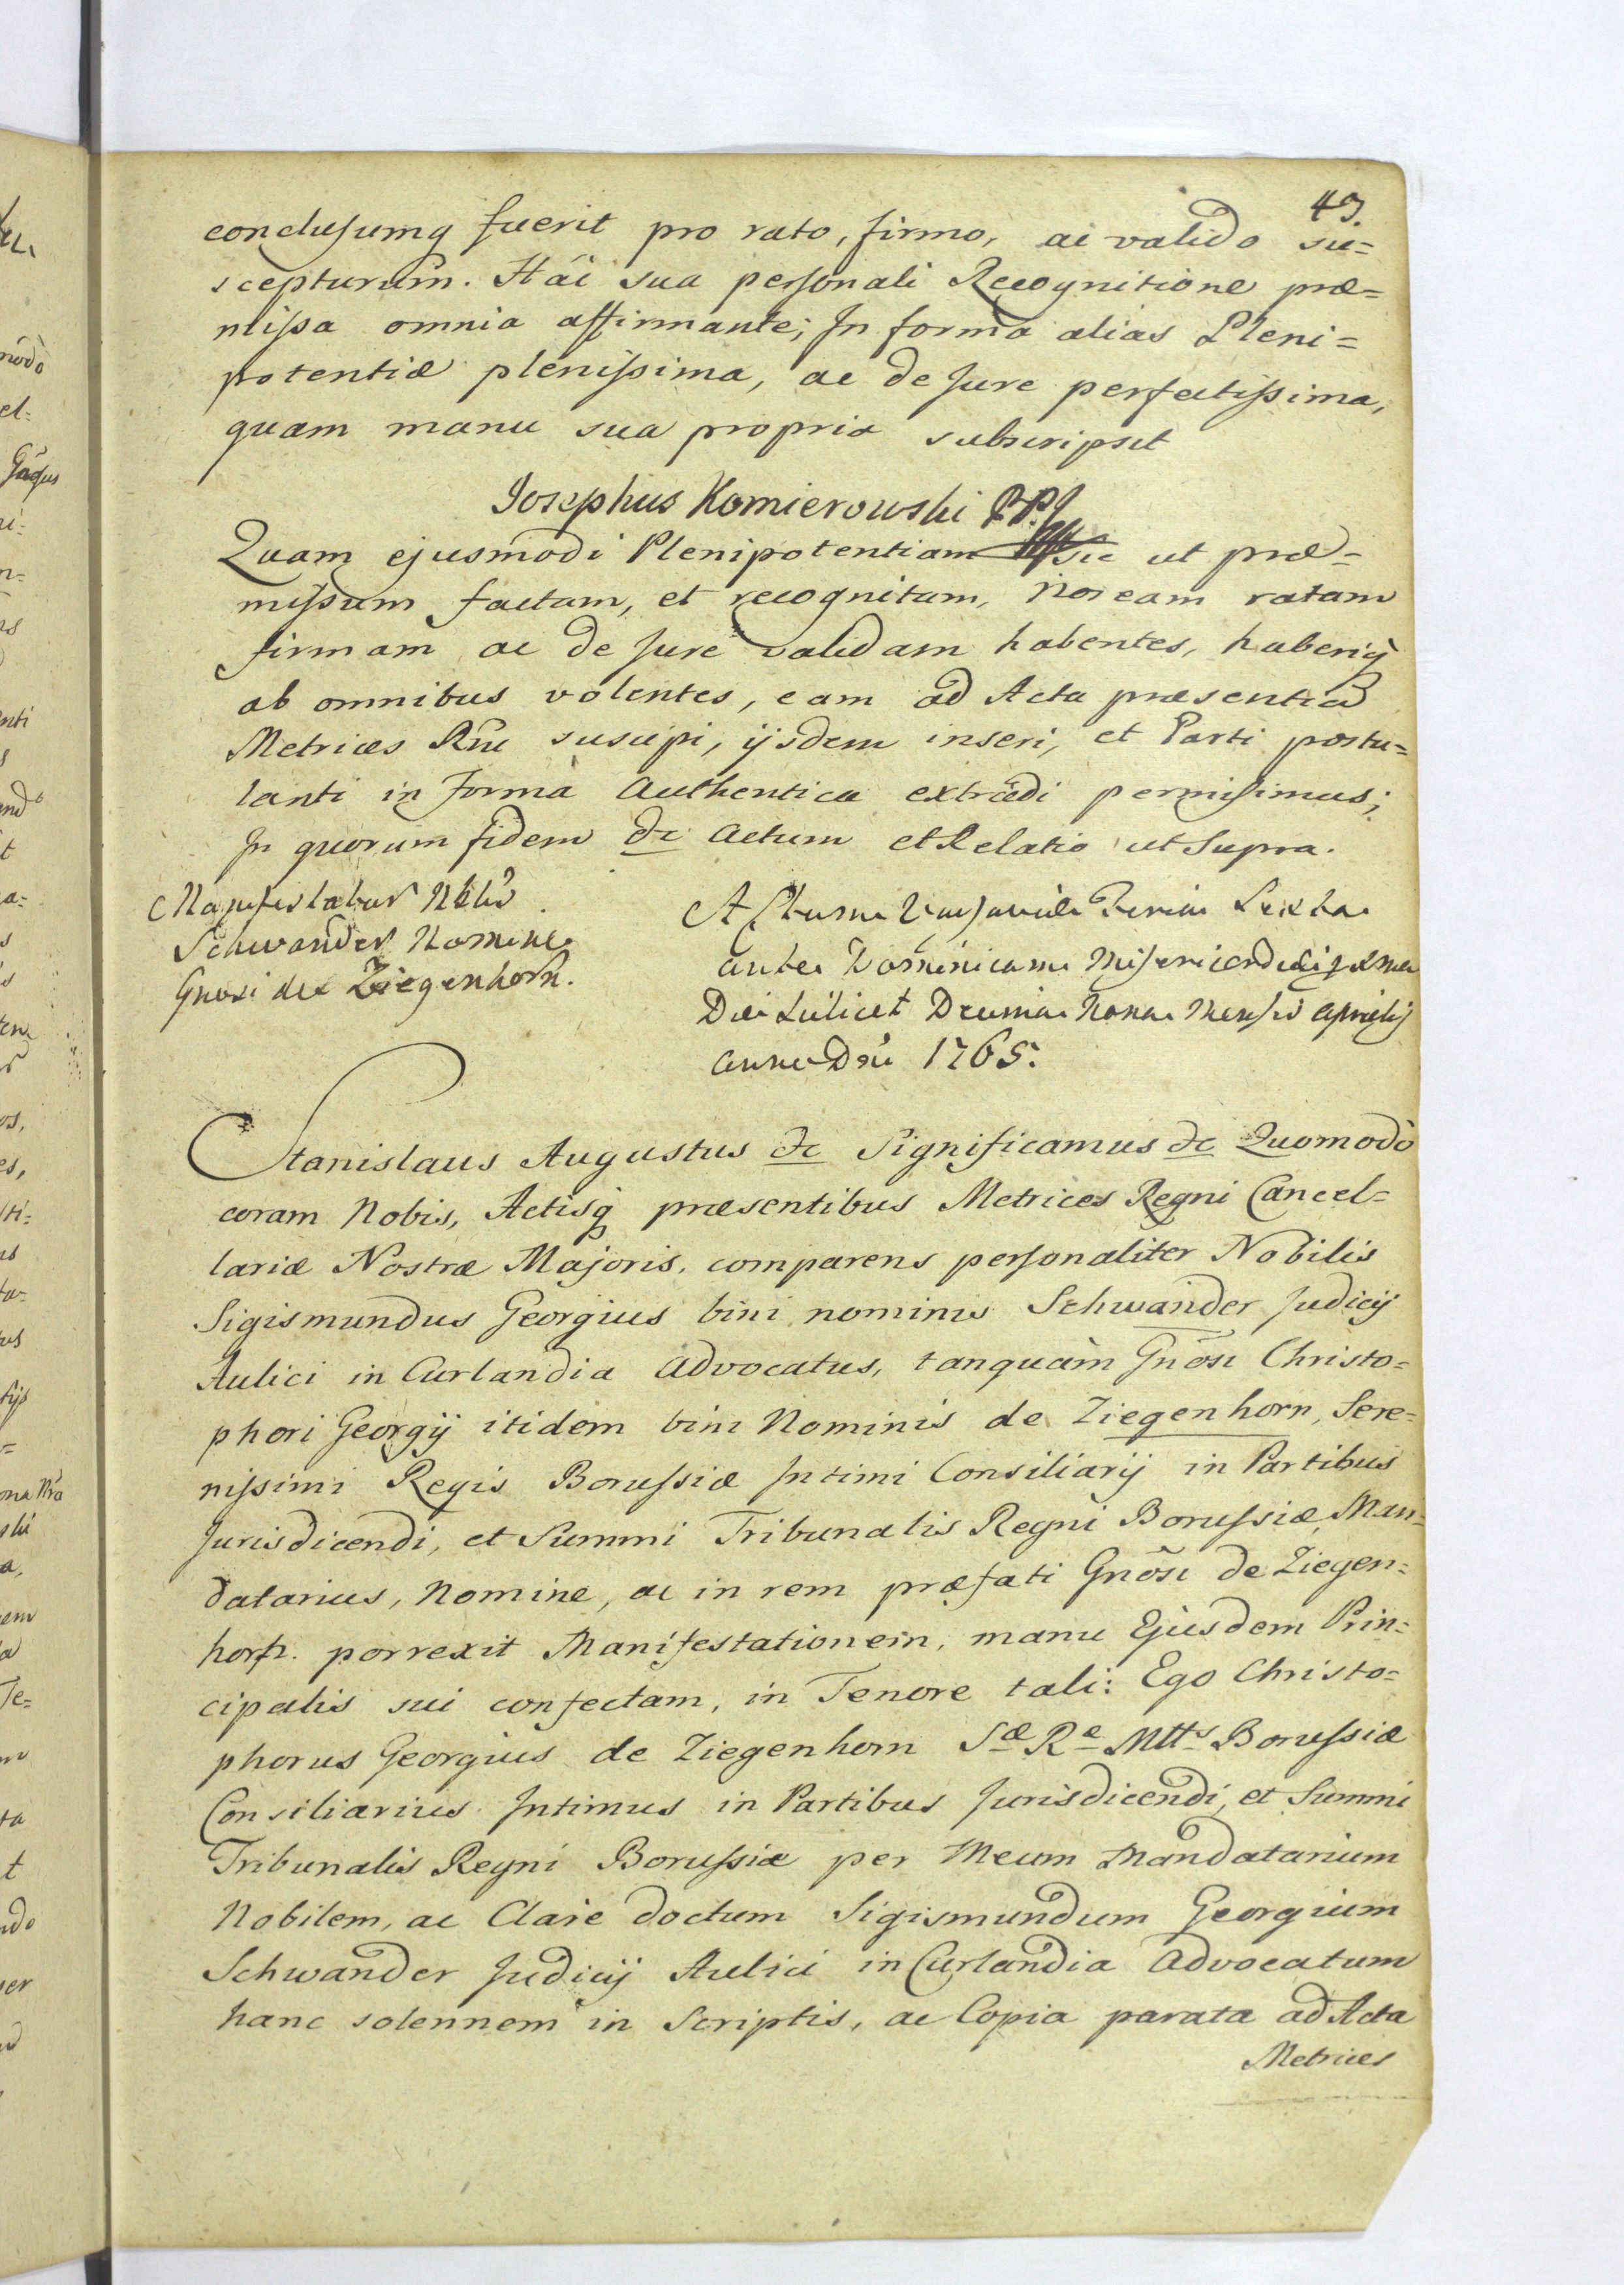 43.
conclusumq fuerit pro rato, firmo, ac valido su=
scepturum. Hâc sua personali Recognitione præ=
missa omnia affirmante; In forma alias Pleni=
potentiæ plenissima, ac de Jure perfectissima,
quam manu sua propria subscripsit
Josephus Komierowski
Quam ejusmodi Plenipotentiam sic ut præ=
missum factam, et recognitam, Nos eam ratam
firmam ac de Jure validam habentes, haberiq
ab omnibus volentes, eam ad Acta præsentia
Metrices Rni suscipi, ijsdem inseri, et Parti postu=
lanti in forma Authentica extradi permisimus;
In quorum fidem &c Actum et Relatio ut Supra.
Manifestatur Nblis
Schwander Nomine
Gnosi de Ziegenhorn.
Actum Varsaviæ Feria Sexta
ante Dominicam Misericordia
Die scilicet Decima Nona Mensis Aprilis
Anno Dni 1765.
Stanislaus Augustus &c Significamus &c Quomodò
coram Nobis, Actisq præsentibus Metrices Regni Cancel=
lariæ Nostræ Majoris, comparens personaliter Nobilis
Sigismundus Georgius bini nominis Schwander Judicij
Aulici in Curlandia Advocatus, tanquàm Gnōsi Christo=
phori Georgij itidem bini Nominis de Ziegenhorn, Sere=
nissimi Regis Borussiæ Intimi Consiliarij in Partibus
Jurisdicendi, et Summi Tribunalis Regni Borussiæ, Man=
datarius, Nomine, ac in rem præfati Gnōsi de Ziegen=
horn. porrexit Manifestationem, manu Ejusdem Prin=
cipalis sui confectam, in Tenore tali: Ego Christo=
phorus Georgius de Ziegenhorn Sæ Re Mtts Borussiæ
Consiliarius Intimus in Partibus Jurisdicendi, et Summi
Tribunalis Regni Borussiæ per Meum Mandatarium
Nobilem, ac Clare doctum Sigismundum Georgium
Schwander Judicij Aulici in Curlandia Advocatum
hanc solennem in Scriptis, ac Copia parata ad Acta
Metrices